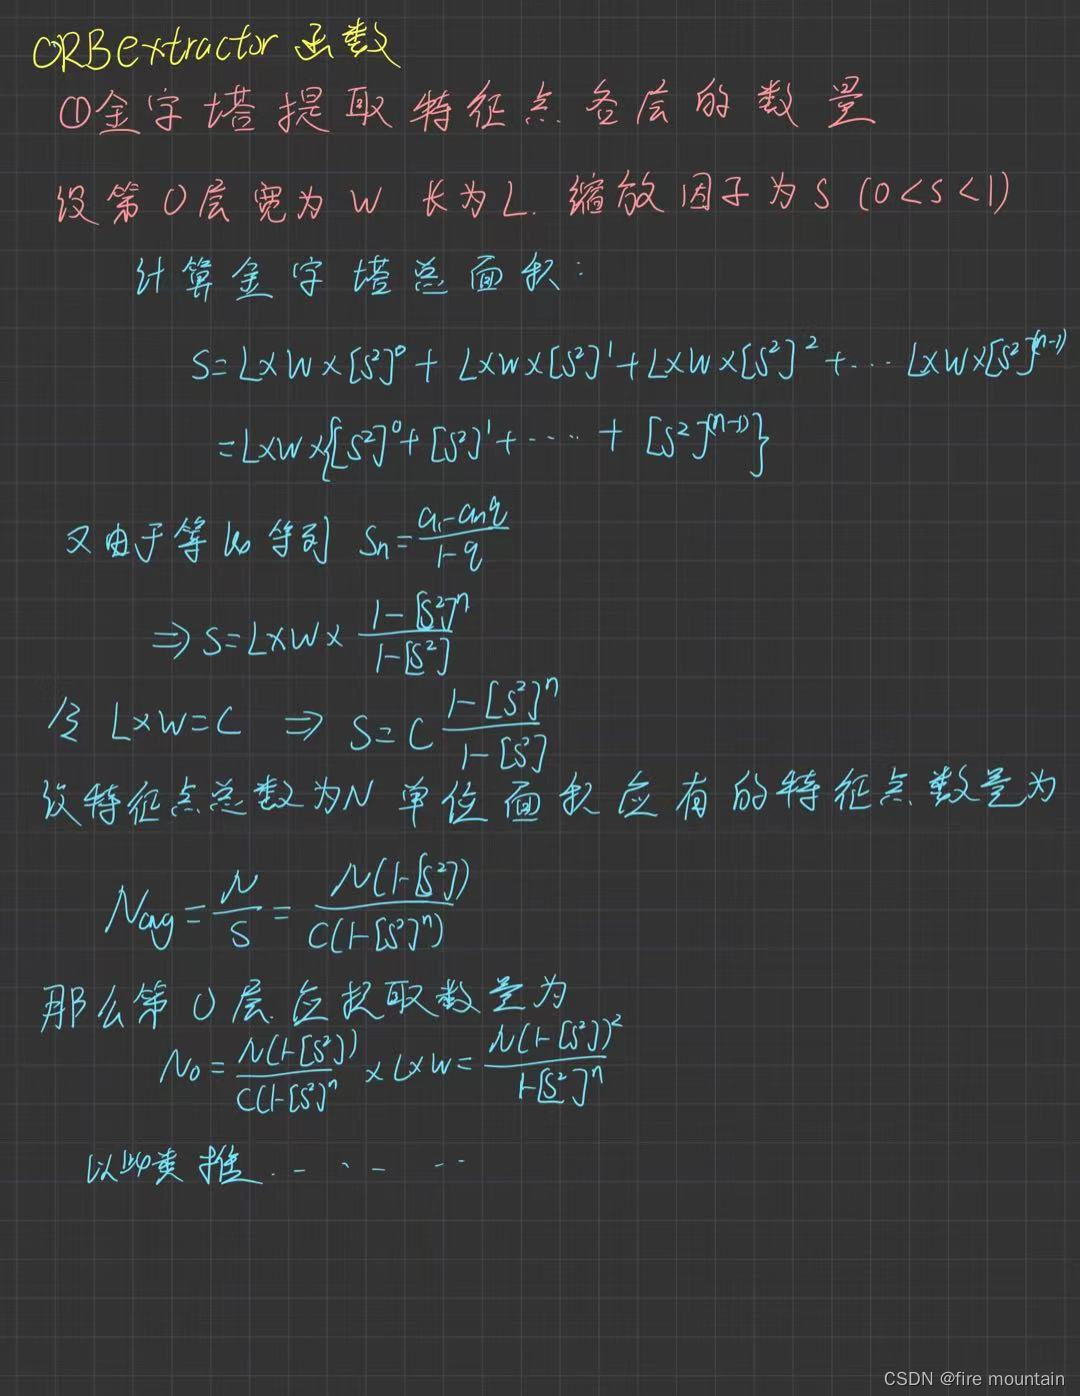 ORBextractor 函数
①金字塔提取特征点各层的数量
设第0层宽为W 长为L. 缩放因子为S (0<s<1)
计算金字塔总面积:
S=L×W×[s²]⁰+ L×W×[s²]¹+L×W×[s²]²+... L×W×[s²]⁽ⁿ⁻¹⁾
=L×W×{[s²]⁰+[s²]¹+·····+[s²]⁽ⁿ⁻¹⁾}
又由于等比等列 Sn=(a₁-anq)/(1-q)
⇒S=L×W×(1-[s²]ⁿ)/(1-[s²])
令 L×W=C ⇒ S=C (1-[s²]ⁿ)/(1-[s²])
设特征点总数为N 单位面积应有的特征点数量为
Navg=N/S=N(1-[s²])/C(1-[s²]ⁿ)
那么第0层.应提取数量为
N₀=N(1-[s²])/C(1-[s²]ⁿ ×L×W=N(1-[s²])²/1-[s²]ⁿ
以此类推.......
CSDN @fire mountain